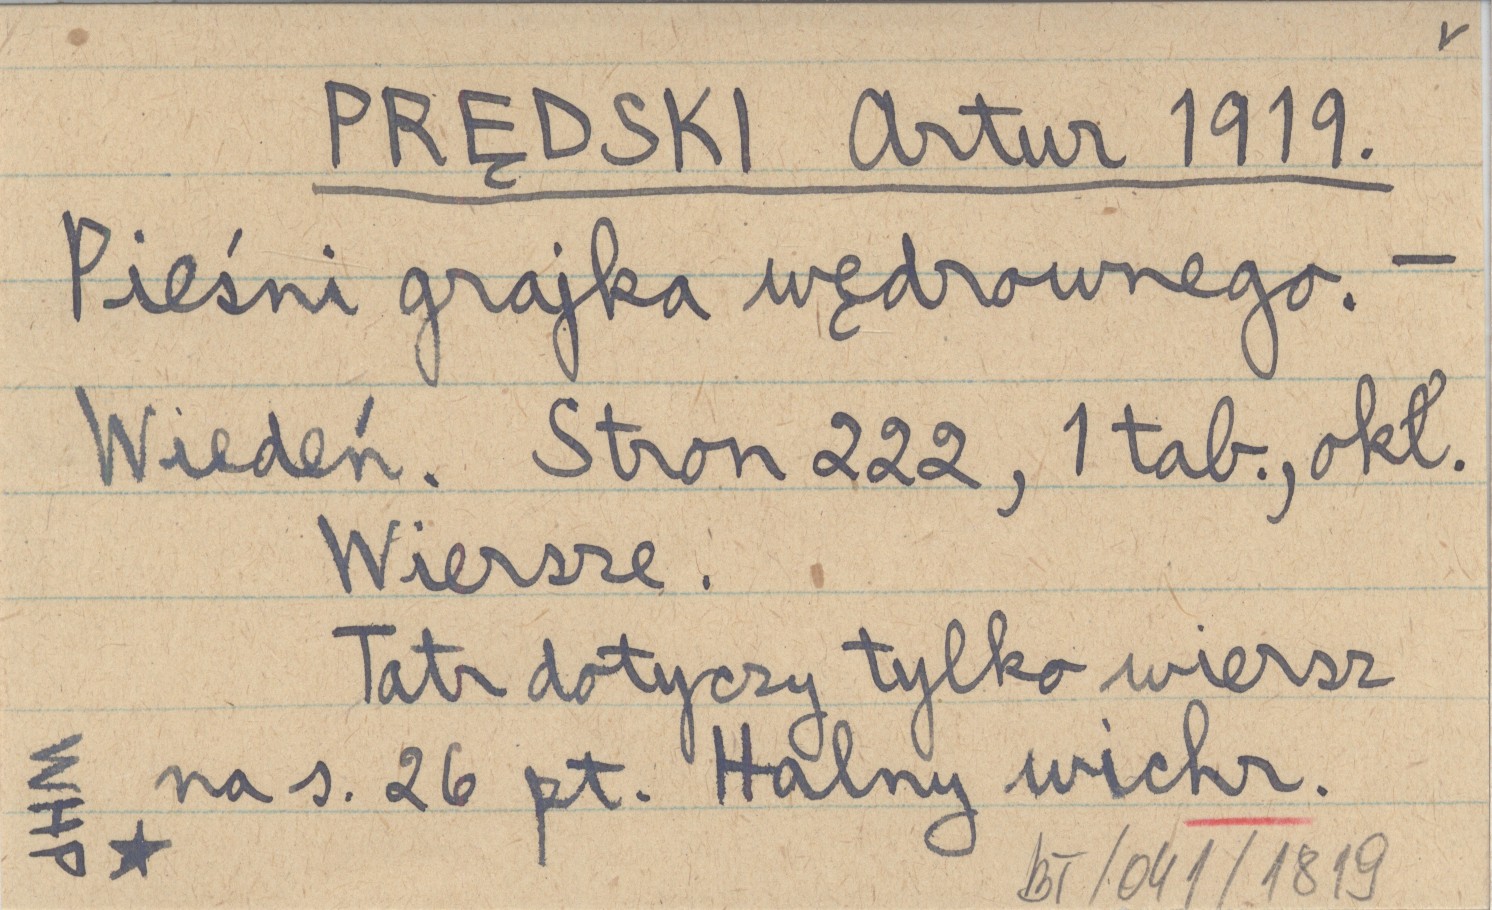 PRĘDSKI Artur 1919.
Pieśni grajka wędrownego. –
Wiedeń. Stron 222, 1 tab., okł.
Wiersze.
Tatr dotyczy tylko wiersz
na s. 26 pt. Halny wichr.
WHP ★
BT/041/1819